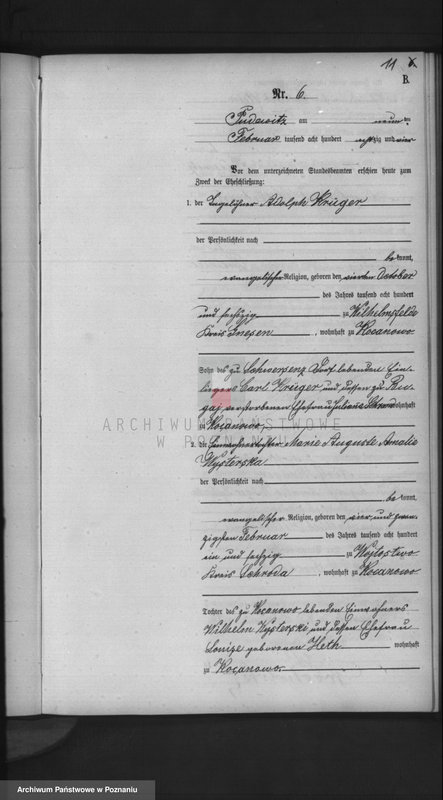 11
B.
Nr. 6.
Pudewitz am neun ten
Februar tausend acht hundert achtzig und vier
Vor dem unterzeichneten Standesbeamten erschien heute zum
Zweck der Eheschließung:
1. der Tagelöhner Adolph Krüger
der Persönlichkeit nach
be kannt,
evangelischer Religion, geboren den vierten October
des Jahres tausend acht hundert
und sechzig zu Wilhelmsfelde
Kreis Gnesen, wohnhaft zu Kocanowo
Sohn des zu Schwersenz Dorf lebenden Ein-
liegers Carl Krüger und dessen zu
verstorbenen Ehefrau Juliana wohnhaft
zu Kocanowo
2. die Marie Auguste Amalie
Wysterska
der Persönlichkeit nach
be kannt,
evangelischer Religion, geboren den vier und zwan-
zigsten Februar des Jahres tausend acht hundert
ein und sechzig zu Wojtostwo
Kreis Schroda, wohnhaft zu Kocanowo
Tochter des zu Kocanowo lebenden Einwohners
Wilhelm Wysterski und dessen Ehefrau
Louize geborenen Heth wohnhaft
zu Kocanowo
ARCHIWUM PAŃSTWOWE
W POZNANIU
Archiwum Państwowe w Poznaniu